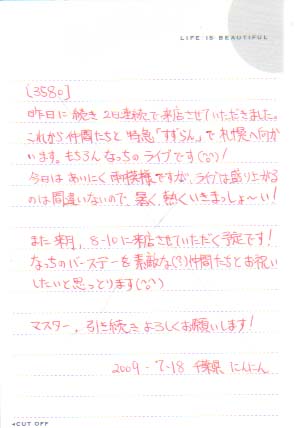 LIFE IS BEAUTIFUL
[3580]
昨日に続き2日連続で来店させていただきました。
これから仲間たちと特急「すずらん」で札幌へ向か
います。もちろんなっちのライブです(^o^)!
今日はあいにく雨模様ですが、ライブは盛り上がる
のは間違いないので、暑く、熱くいきまっしょ〜い!
また来月、8-10に来店させていただく予定です!
なっちのバースデーを素敵な(?)仲間たちとお祝い
したいと思っとります(^o^)
マスター、引き続きよろしくお願いします!
2009-7-18 千葉県 にんにん
◂CUT OFF